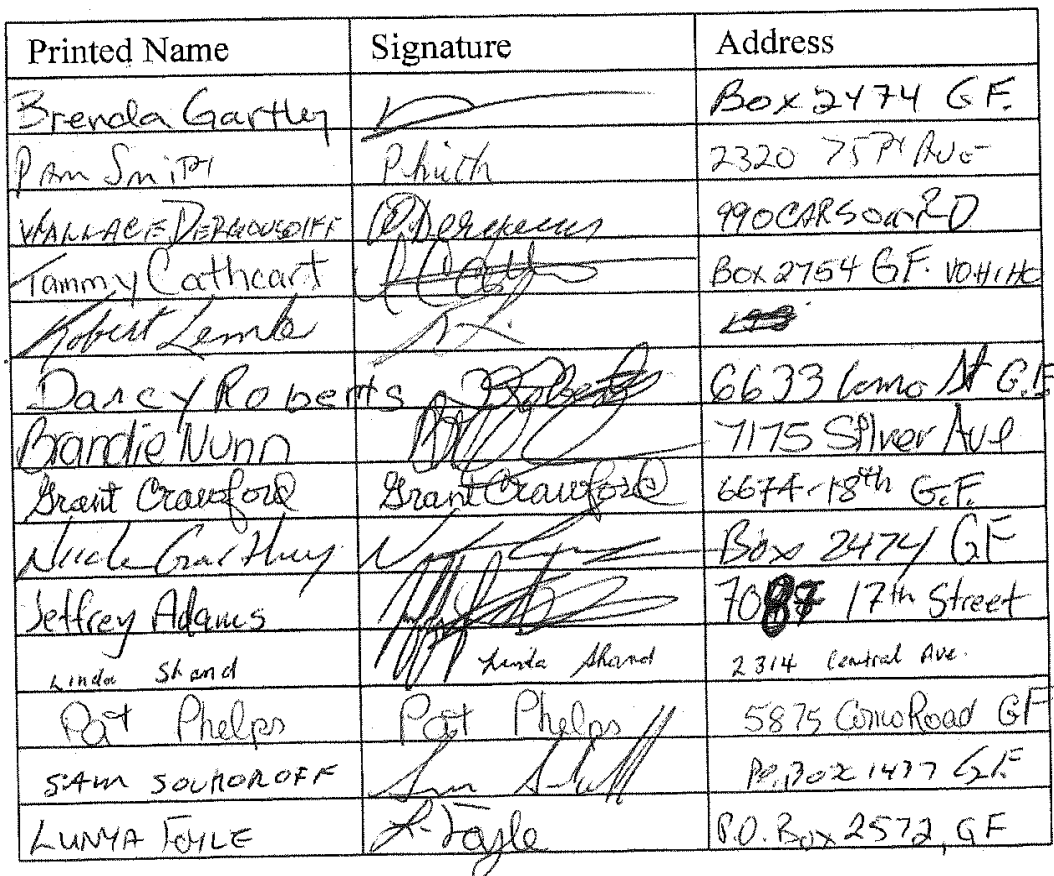 Printed Name Signature Address
Brenda Gartley Box 2474 G.F.
Pam Smith P Smith 2320 75th Ave
WALLACE DERHOUSOFF 990 CARSON RD
Tammy Cathcart Box 2754 G.F. V0H1H0
Robert Lemke R L.
Darcy Roberts DRoberts 6633 Como St G.F.
Brandie Nunn 7175 Silver Ave
Grant Crawford Grant Crawford 6674-18th G.F.
Nicole Gartley Box 2474 GF
Jeffrey Adams 7087 17th Street
Linda Shand Linda Shand 2314 Central Ave.
Pat Phelps Pat Phelps 5875 Como Road GF
SAM SOUKOROFF P.O. Box 1477 G.F.
LUNYA FOYLE L. Foyle P.O. Box 2572, GF